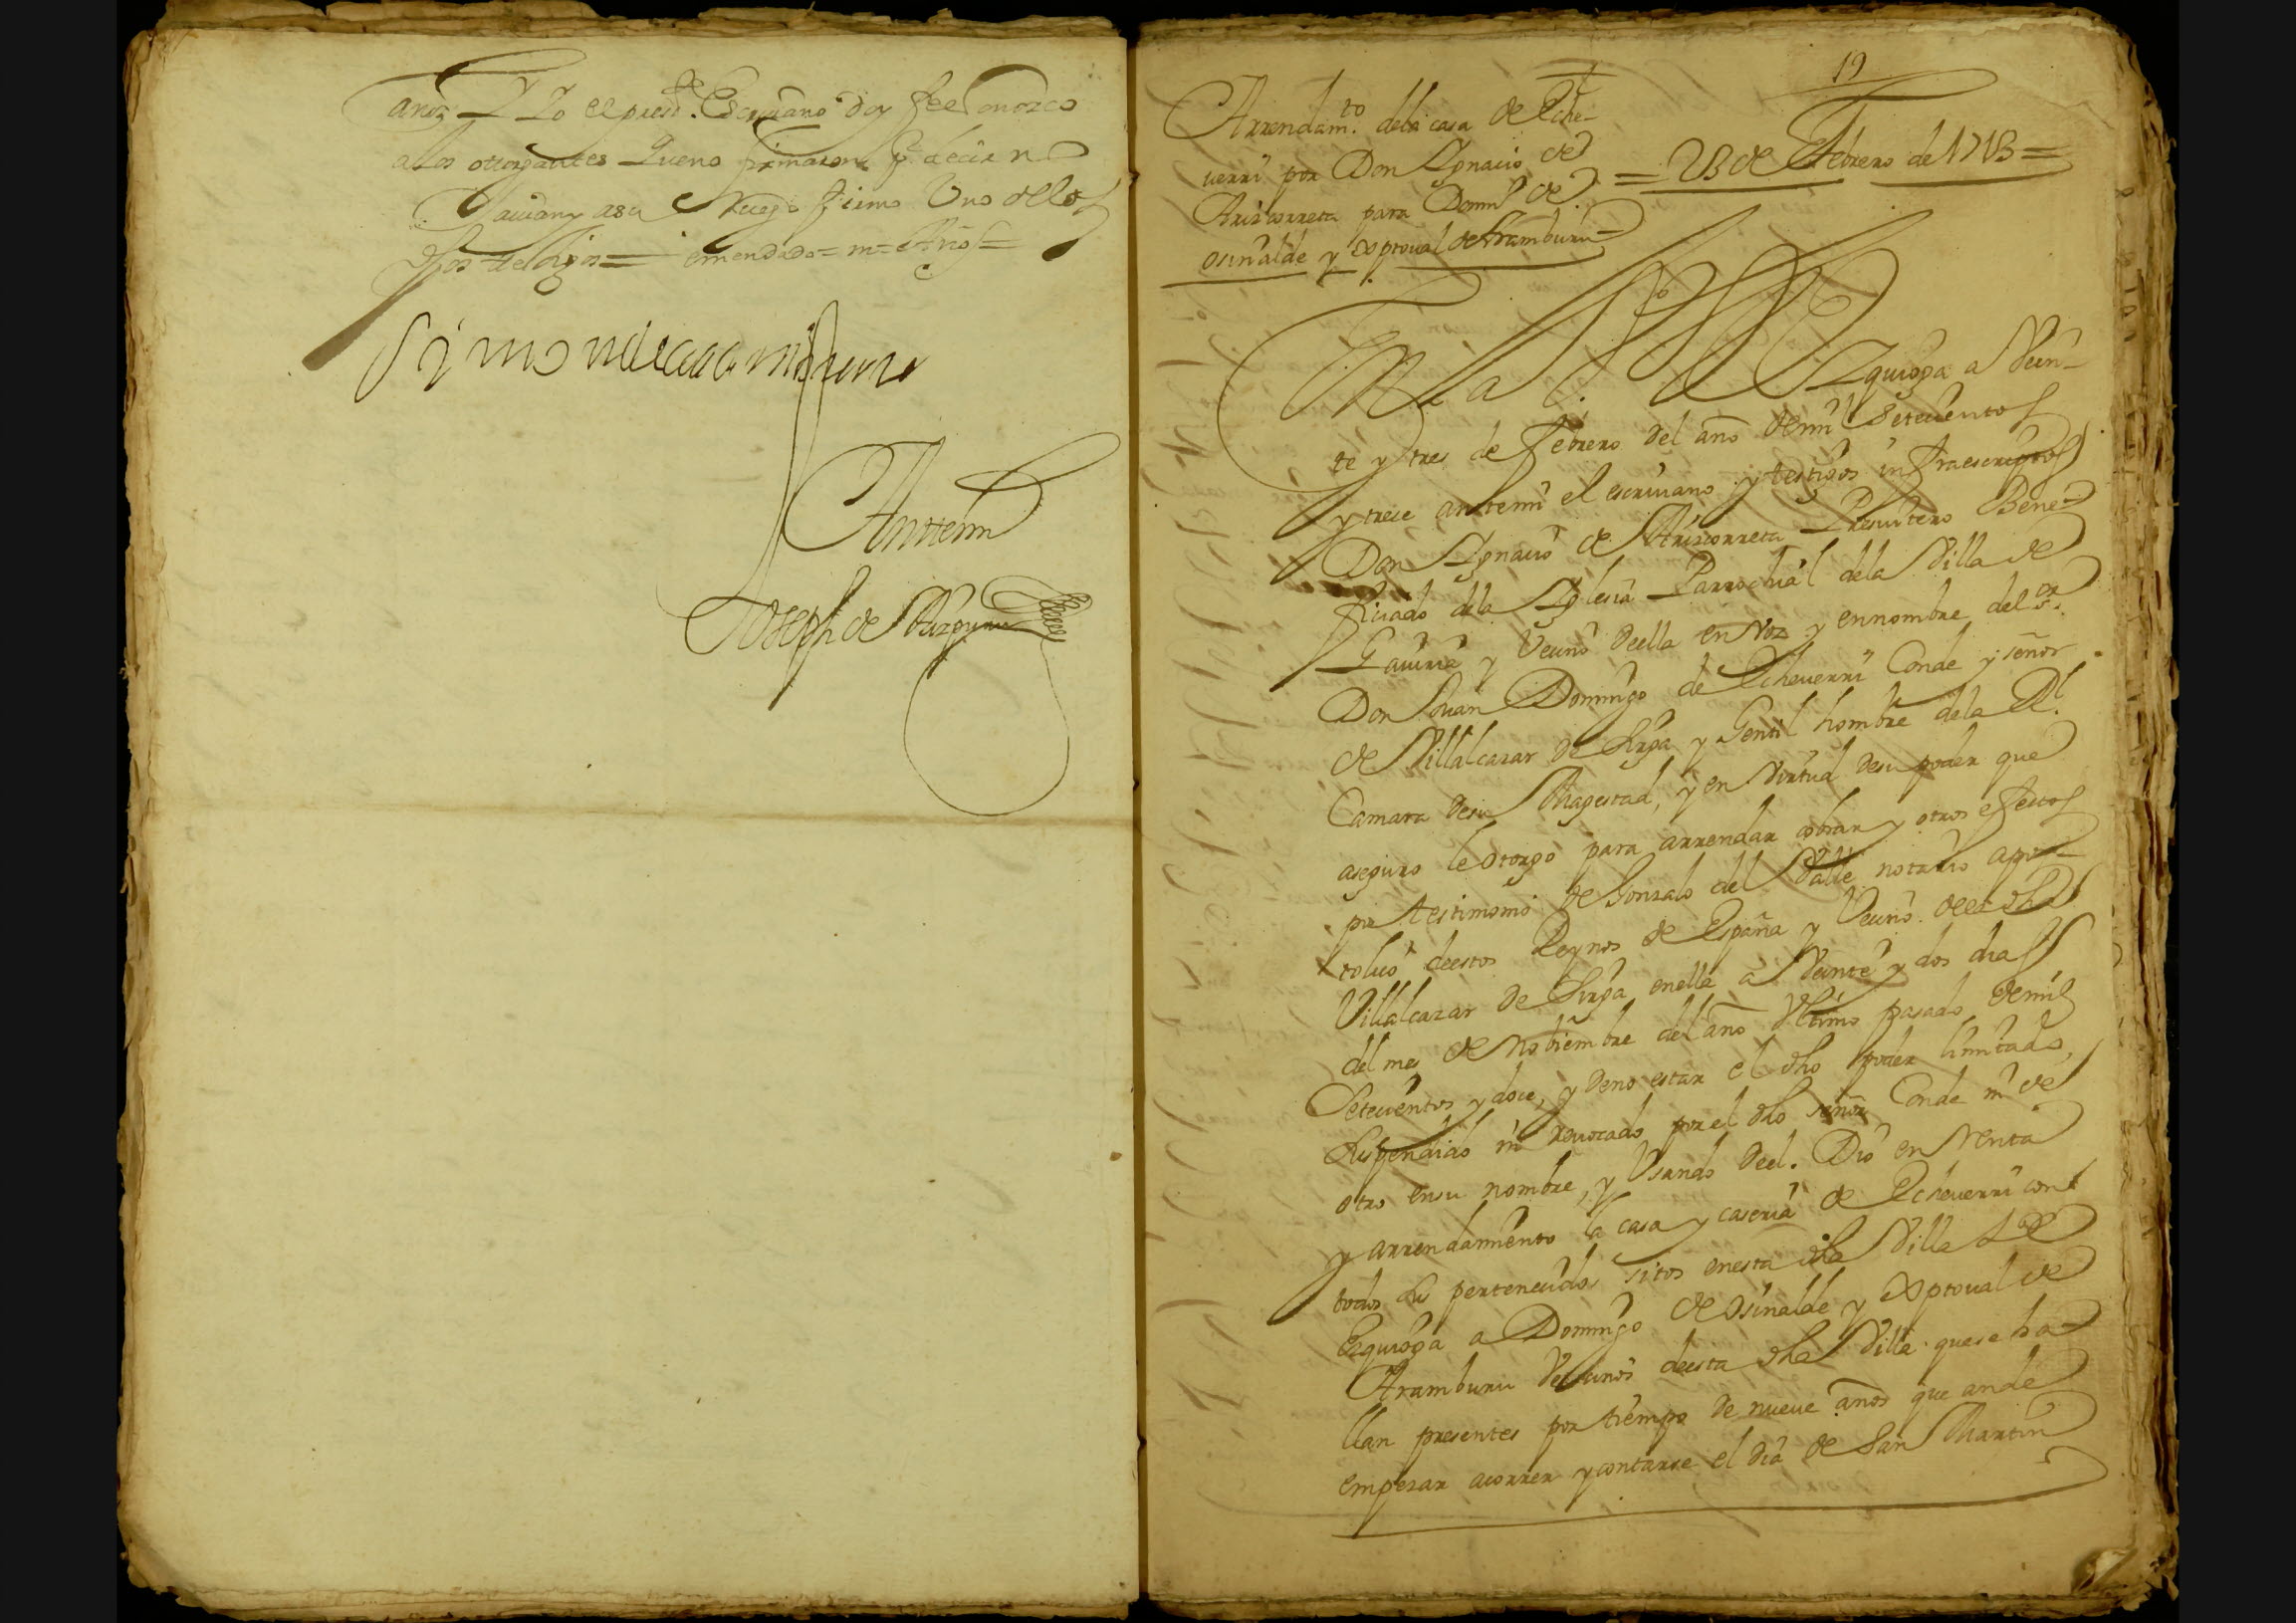 años = Y Yo el press.te Escriuano doy fee Conozco
a los otorgantes Que no firmaron p.r decir no
sauian y a su Ruego firmo Uno de los
dhos testigos = emendado = m = Años =
Antemi
Joseph de Aizpuru
19
Arrendam.to de la casa de Eche-
uerri por Don Ygnacio de
Arizcorreta para Domi.o de
Osinalde y Xptoual de Aramburu =
= 23 de Febrero de 1713 =
En la Villa de Ezquioga a Vein-
te y tres de Febrero del año de mil Setecientos
y trece ante mi el escriuano y testigos infraescriptos
Don Ygnacio de Arizcorreta Presuitero Bene-
ficiado de la Yglesia Parrochial de la Villa de
Gauiria y Vecino de ella en Voz y en nombre del s.or
Don Juan Domingo de Echeuerri Conde y señor
de Villalcazar de Sirga y Gentil hombre de la R.l
Camara de su Magestad, y en Virtud de su poder que
aseguro le otorgo para arrendar cobrar y otros efectos
por testimonio de Gonzalo del Valle notario apos-
tolico de estos Reynos de España y Vecino de la dha
Villalcazar de Sirga en ella a Veinte y dos dias
del mes de Nobiembre del año Vltimo pasado de mil
Setecientos y doce, y de no estar el dho poder limitado,
suspendido ni reuocado por el dho señor Conde ni de
otro en su nombre, y Vsando de el. Dio en Renta
y arrendamiento la casa y caseria de Echeuerri con
todos sus pertenecidos sitos en esta dha Villa de
Ezquioga a Domingo de Osinalde y Xptoual de
Aramburu Vecinos de esta dha Villa que se ha-
llan presentes por tiempo de nueue años que an de
empezar a correr y contarse el dia de San Martin